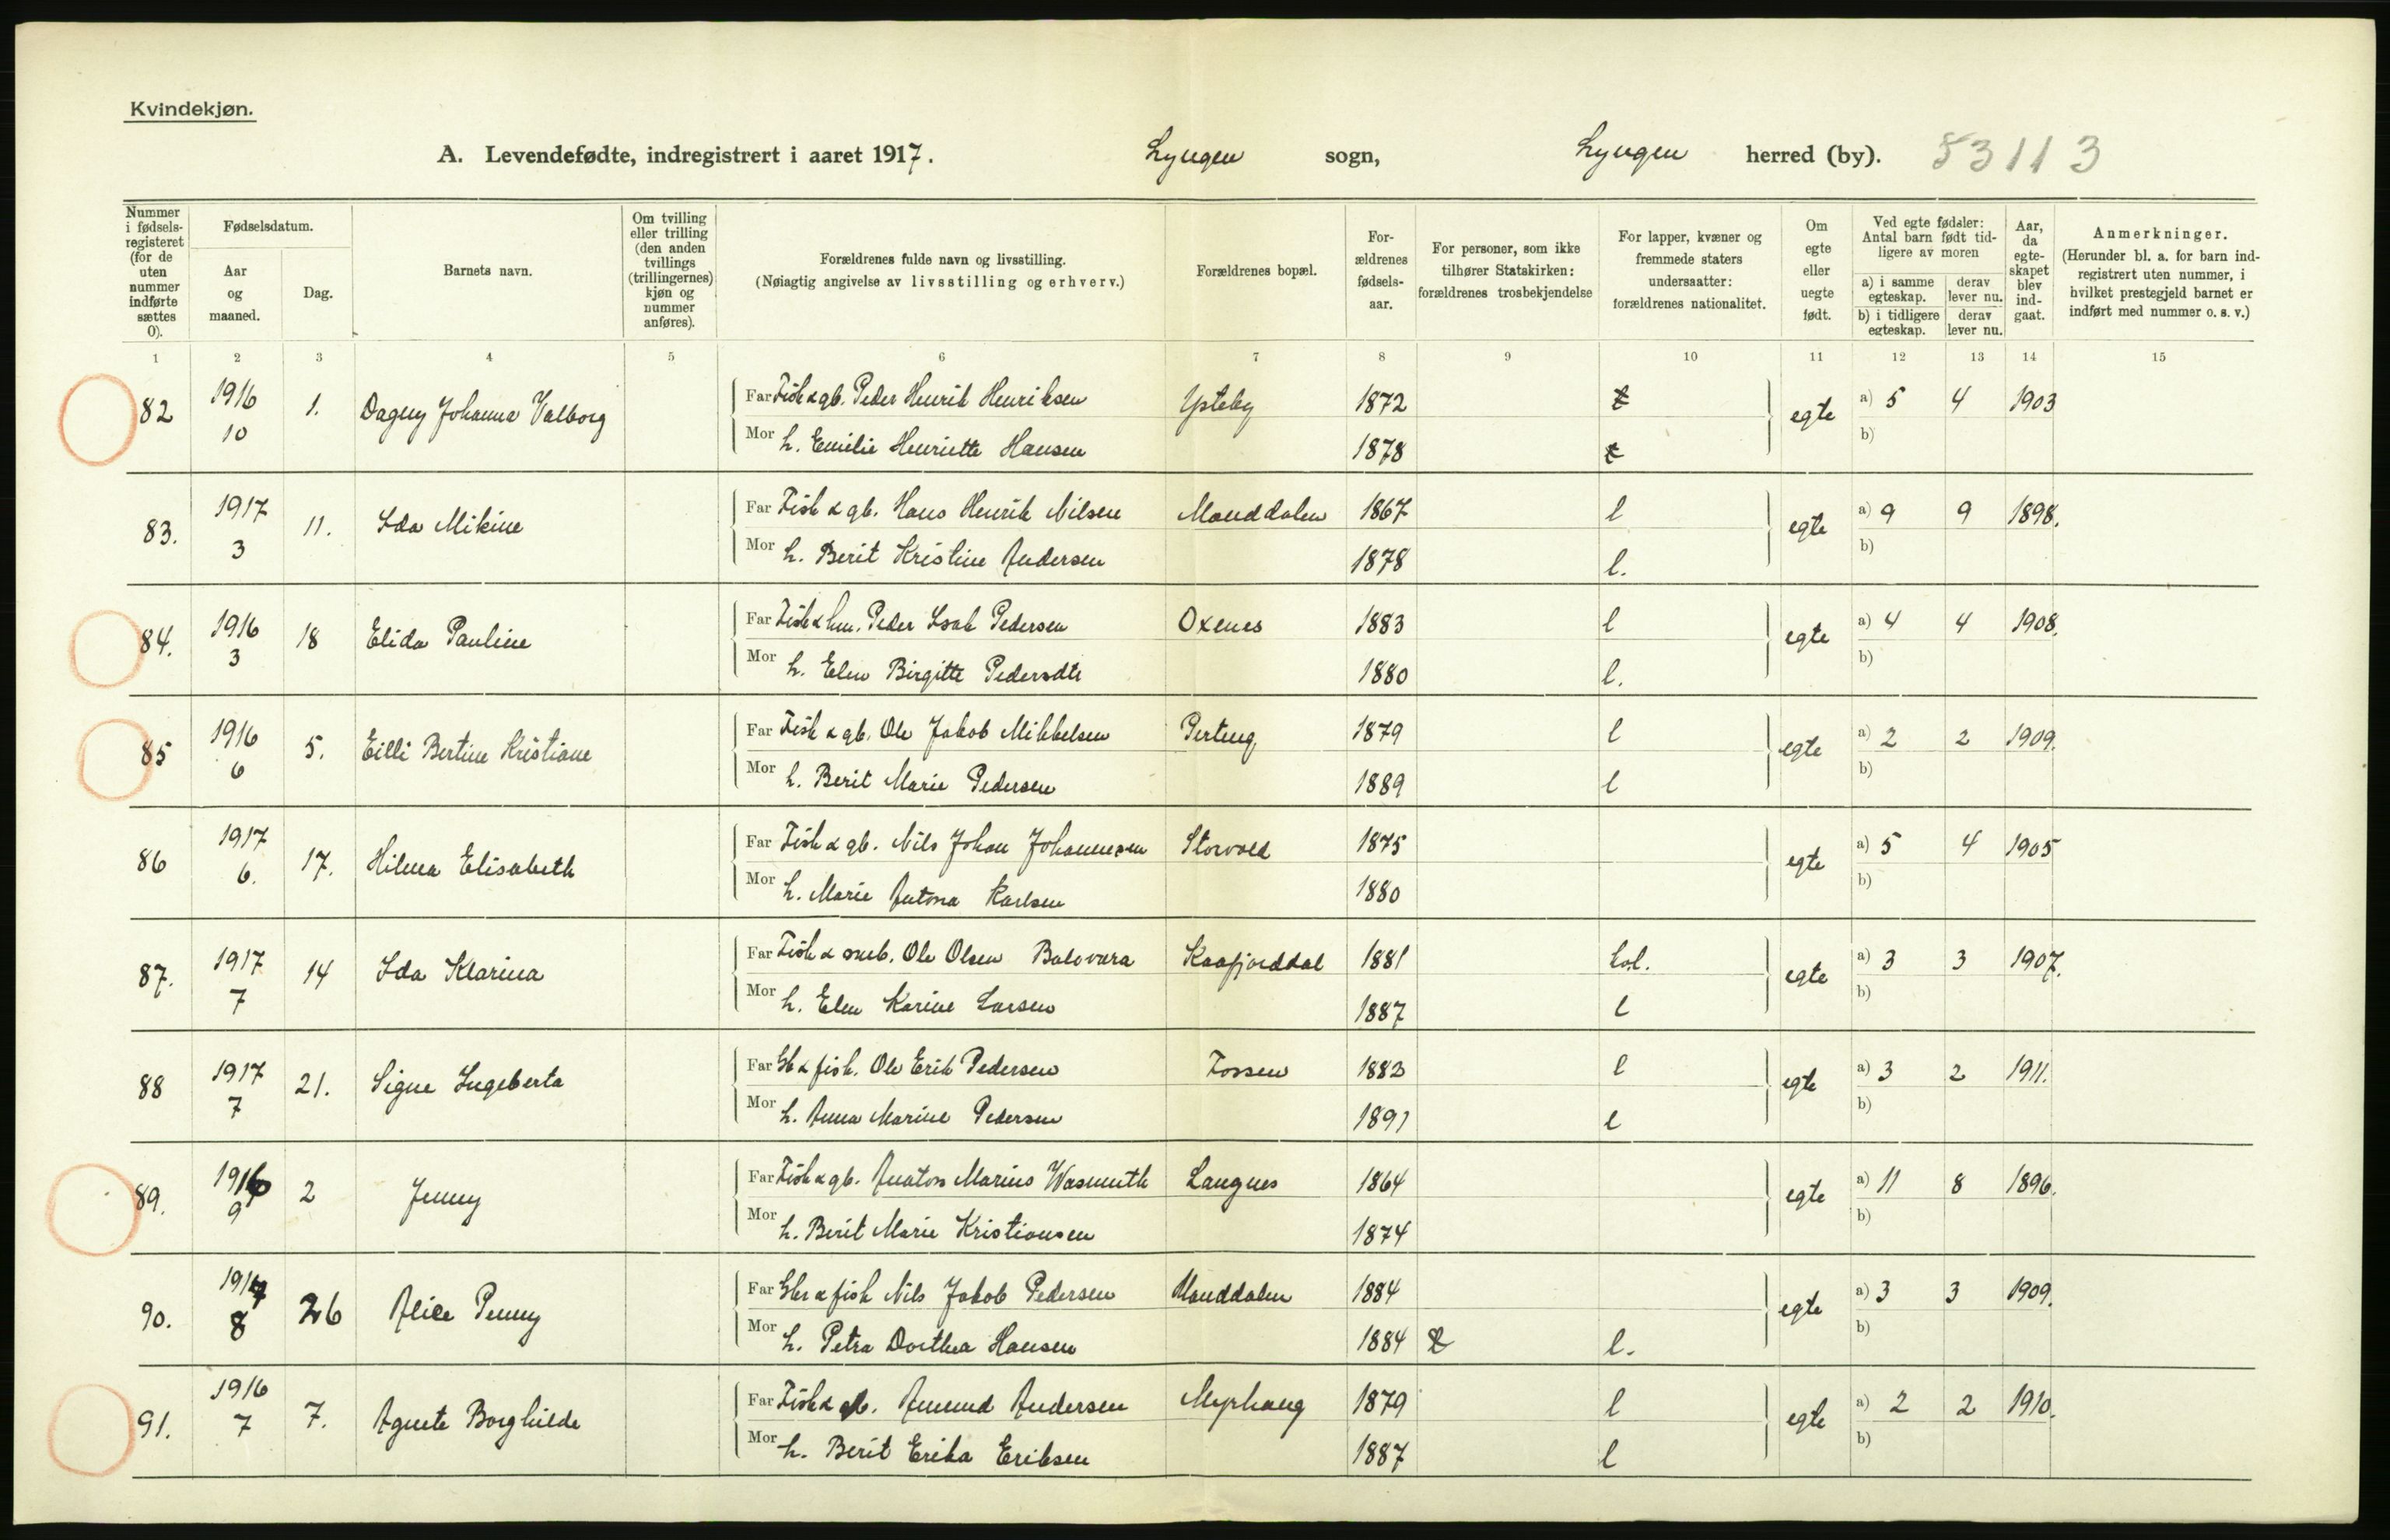 Kvindekjøn.
A. Levendefødte, indregistrert i aaret 1917. Lyngen sogn, Lyngen herred (by). 53113
Nummer i fødselsregisteret (for de uten nummer indførte sættes 0).
Fødselsdatum.
Aar og maaned.
Dag.
Barnets navn.
Om tvilling eller trilling (den anden tvillings (trillingernes) kjøn og nummer anføres).
Forældrenes fulde navn og livsstilling.
(Nøiagtig angivelse av livsstilling og erhverv.)
Forældrenes bopæl.
Forældrenes fødselsaar.
For personer, som ikke tilhører Statskirken: forældrenes trosbekjendelse
For lapper, kvæner og fremmede staters undersaatter: forældrenes nationalitet.
Om egte eller uegte født.
Ved egte fødsler: Antal barn født tidligere av moren
a) i samme egteskap. derav lever nu.
b) i tidligere egteskap. derav lever nu.
Aar, da egteskapet blev indgaat.
Anmerkninger.
(Herunder bl. a. for barn indregistrert uten nummer, i hvilket prestegjeld barnet er indført med nummer o. s. v.)
1 2 3 4 5 6 7 8 9 10 11 12 13 14 15
82 1916 10 1. Dagny Johanne Valborg Far Fisk & gb. Peder Henrik Henriksen Ysteby 1872 egte a) 5 4 1903
Mor h. Emilie Henriette Hansen 1878 b)
83. 1917 3 11. Ida Mikine Far Fisk & gb. Hans Henrik Nilsen Manddalen 1867 l egte a) 9 9 1898.
Mor h. Berit Kristine Andersen 1878 l. b)
84. 1916 3 18 Elida Pauline Far Fisk & hm. Peder Isak Pedersen Oxenes 1883 l egte a) 4 4 1908.
Mor h. Elen Birgitte Pedersdtr 1880 l. b)
85 1916 6 5. Eilli Bertine Kristiane Far Fisk & gb. Ole Jakob Mikkelsen 1879 l egte a) 2 2 1909.
Mor h. Berit Marie Pedersen 1889 l b)
86 1917 6. 17. Hilma Elisabeth Far Fisk & gb. Nils Johan Johannesen Storvold 1875 egte a) 5 4 1905
Mor h. Marie Antona Karlsen 1880 b)
87. 1917 7 14 Ida Klarina Far Fisk & Ole Olsen Balovara Kaafjorddal 1881 egte a) 3 3 1907.
Mor h. Elen Karine Larsen 1887 l b)
88 1917 7 21. Signe Ingeberta Far Gb & fisk. Ole Erik Pedersen Fossen 1883 l egte a) 3 2 1911.
Mor h. Anna Marine Pedersen 1891 l b)
89. 1916 9 2 Jenny Far Fisk & gb. Anaton Marius Wasmuth Langnes 1864 egte a) 11 8 1896.
Mor h. Berit Marie Kristiansen 1874 b)
90. 1917 8 26 Alice Penny Far Gbr & fisk Nils Jakob Pedersen Manddalen 1884 egte a) 3 3 1909.
Mor h. Petra Dorthea Hansen 1884 l. b)
91. 1916 7 7. Agnete Borghilde Far Fisk & Amund Andersen Myrhaug 1879 l egte a) 2 2 1910.
Mor h. Berit Erika Eriksen 1887 l b)